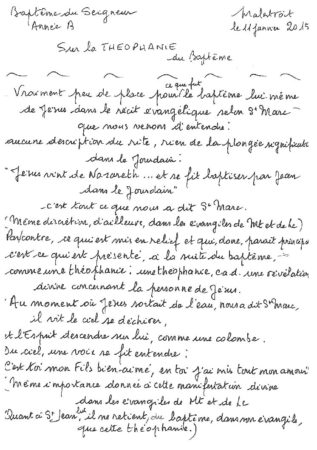 Baptême du Seigneur
Année B
Malestroit
le 11 janvier 2015
Sur la THEOPHANIE
du Baptême
Vraiment peu de place pour ce que fut le baptême lui-même
de Jésus dans le récit évangélique selon St Marc
que nous venons d'entendre :
aucune description du rite, rien de la plongée significative
dans le Jourdain :
"Jésus vint de Nazareth... et se fit baptiser par Jean
dans le Jourdain"
c'est tout ce que nous a dit St Marc.
(Même discrétion, d'ailleurs, dans les évangiles de Mt et de Lc)
Par contre, ce qui est mis en relief et qui, donc, paraît
c'est ce qui est présenté, à la suite du baptême,
comme une théophanie : une théophanie, c.a.d. une révélation
divine concernant la personne de Jésus.
"Au moment où Jésus sortait de l'eau, nous a dit St Marc,
il vit le ciel se déchirer,
et l'Esprit descendre sur lui, comme une colombe.
Du ciel, une voix se fit entendre :
C'est toi mon Fils bien-aimé, en toi j'ai mis tout mon amour"
(Même importance donnée à cette manifestation divine
dans les évangiles de Mt et de Lc
Quant à St Jean, lui il ne retient, du baptême, dans son évangile,
que cette théophanie.)